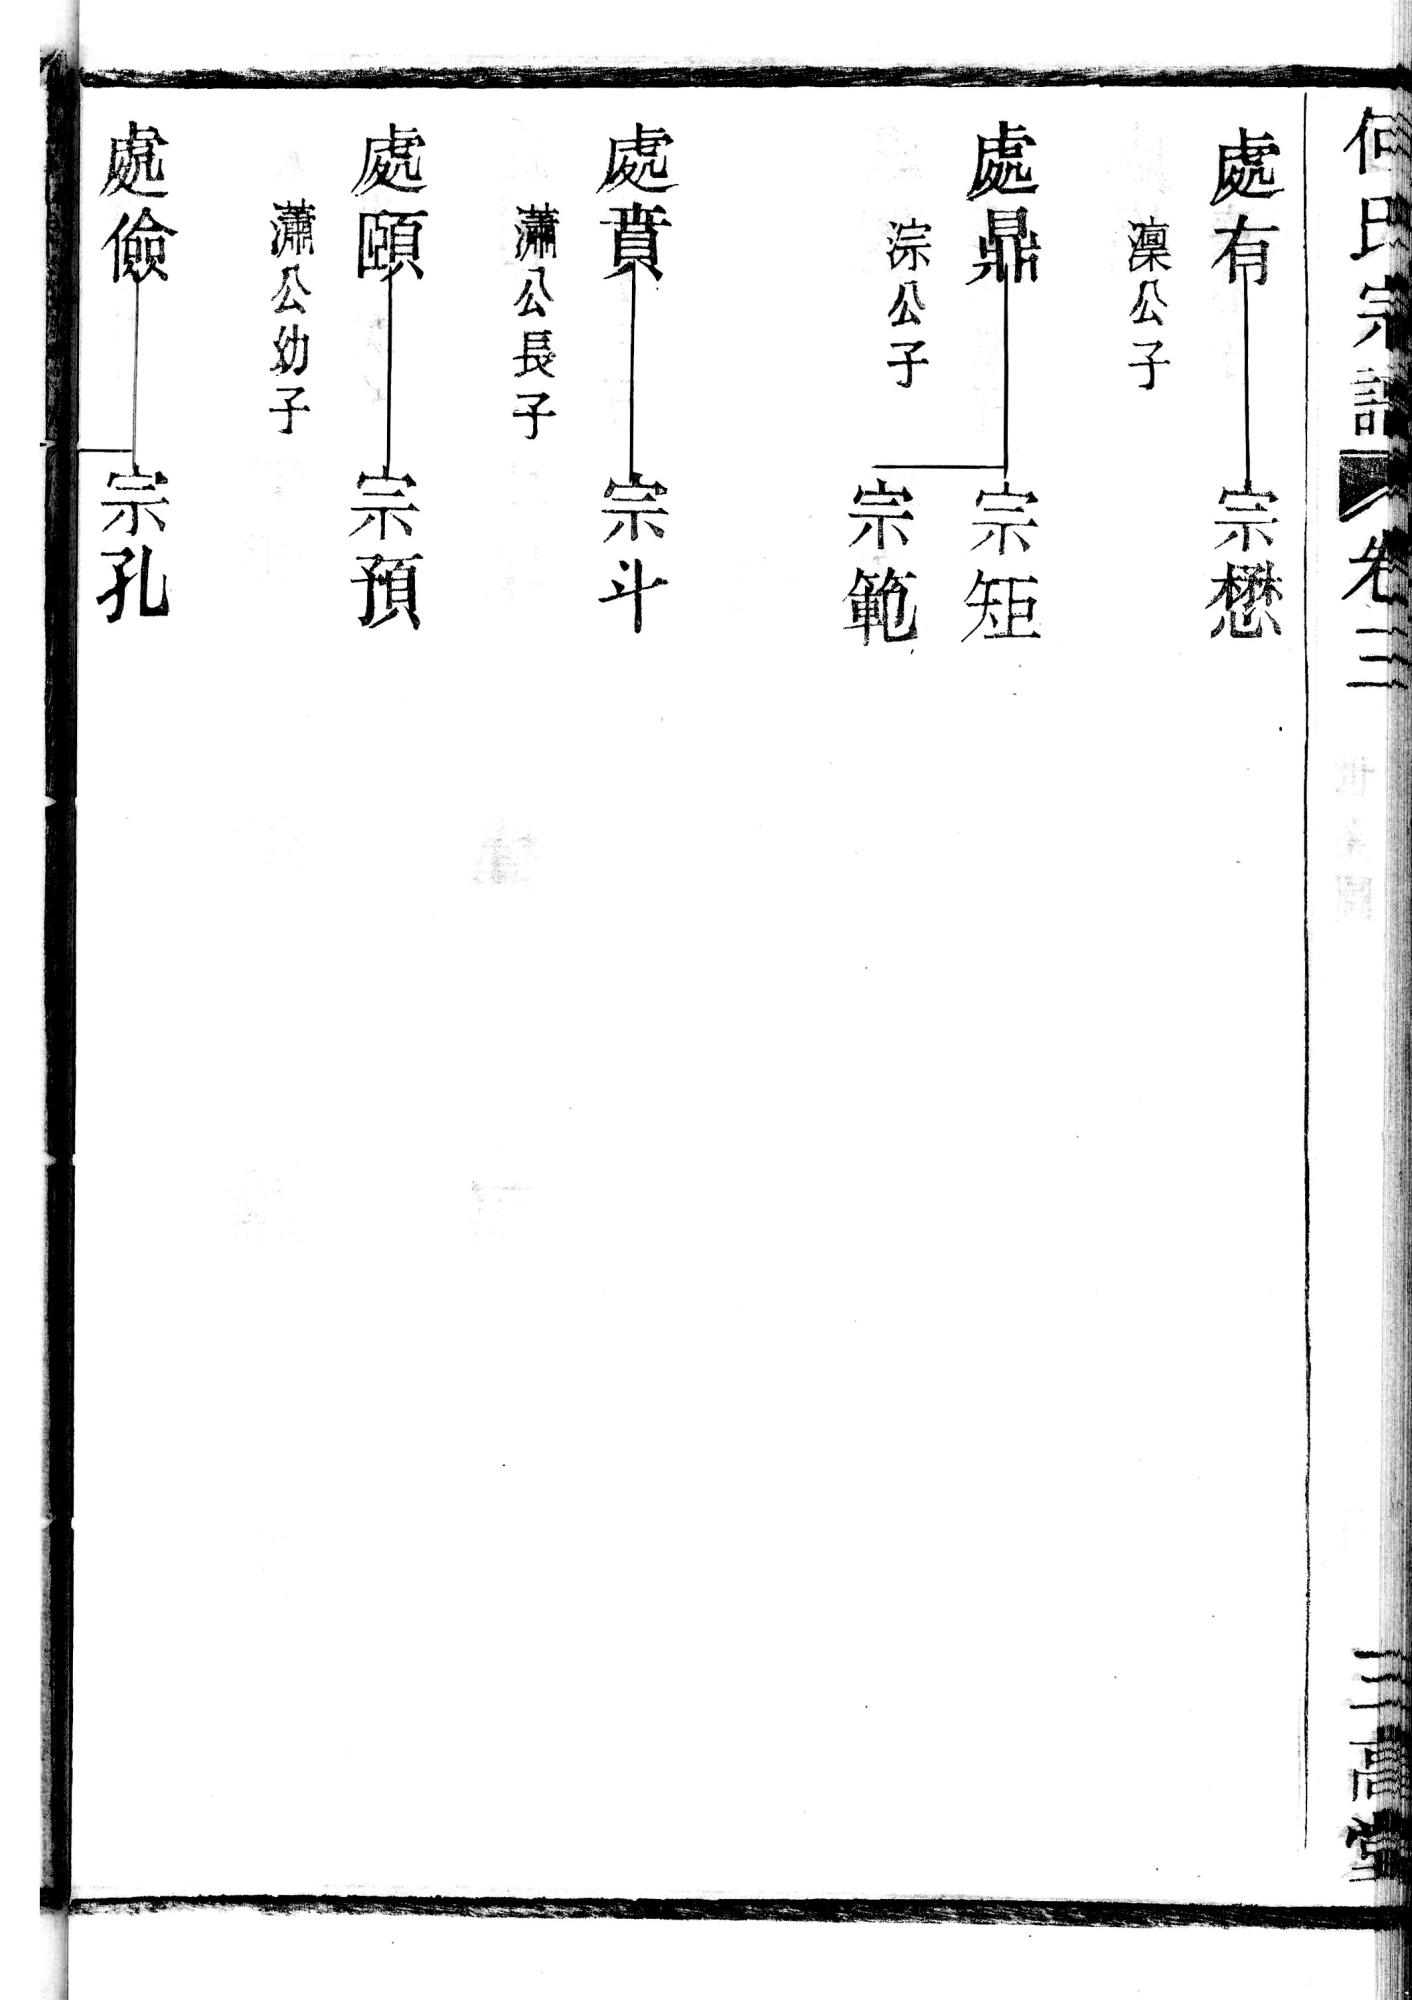 何氏宗譜 卷三 三高堂
處有
宗懋
澟公子
處鼎
宗矩
宗範
淙公子
處賁
宗斗
瀟公長子
處頤
宗預
瀟公幼子
處儉
宗孔